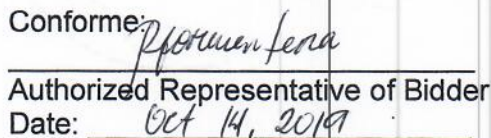 Conforme:
Authorized Representative of Bidder
Date: Oct 14, 2019